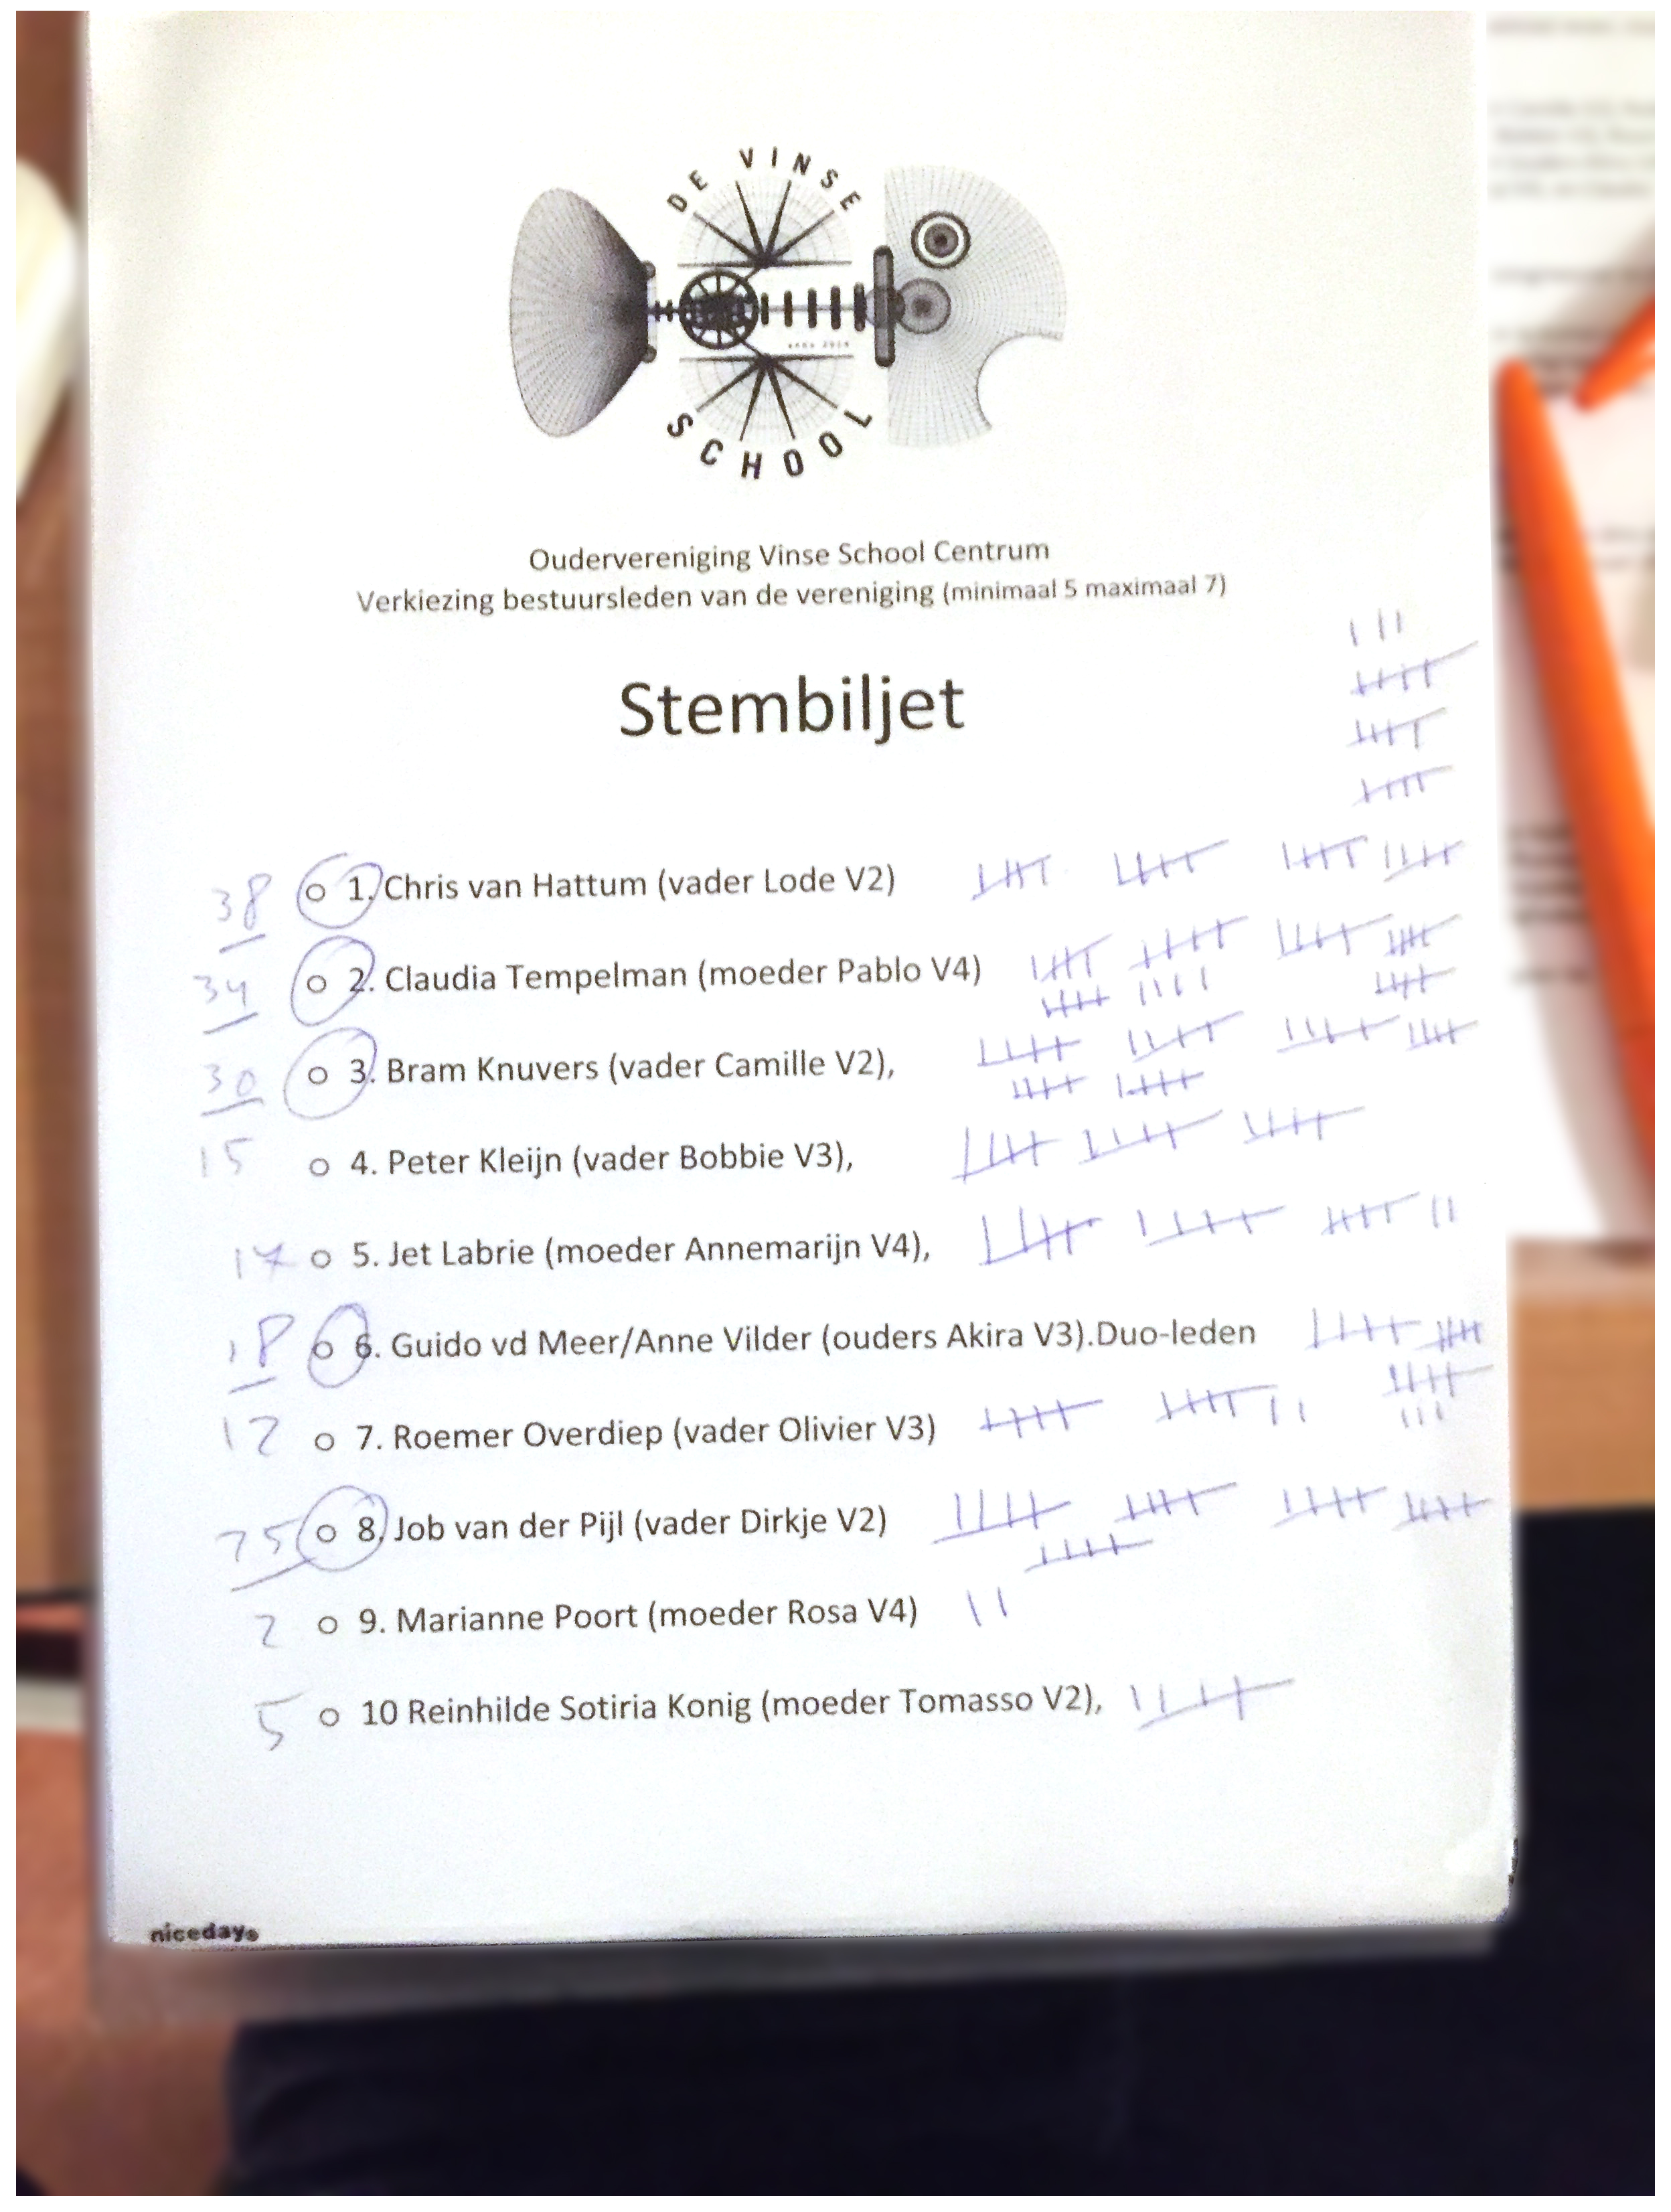 DE VINSE
SCHOOL
Oudervereniging Vinse School Centrum
Verkiezing bestuursleden van de vereniging (minimaal 5 maximaal 7)
Stembiljet
38 1. Chris van Hattum (vader Lode V2)
34 2. Claudia Tempelman (moeder Pablo V4)
30 3. Bram Knuvers (vader Camille V2),
15 4. Peter Kleijn (vader Bobbie V3),
17 5. Jet Labrie (moeder Annemarijn V4),
18 6. Guido vd Meer/Anne Vilder (ouders Akira V3).Duo-leden
12 7. Roemer Overdiep (vader Olivier V3)
25 8. Job van der Pijl (vader Dirkje V2)
2 9. Marianne Poort (moeder Rosa V4)
5 10 Reinhilde Sotiria Konig (moeder Tomasso V2),
niceday